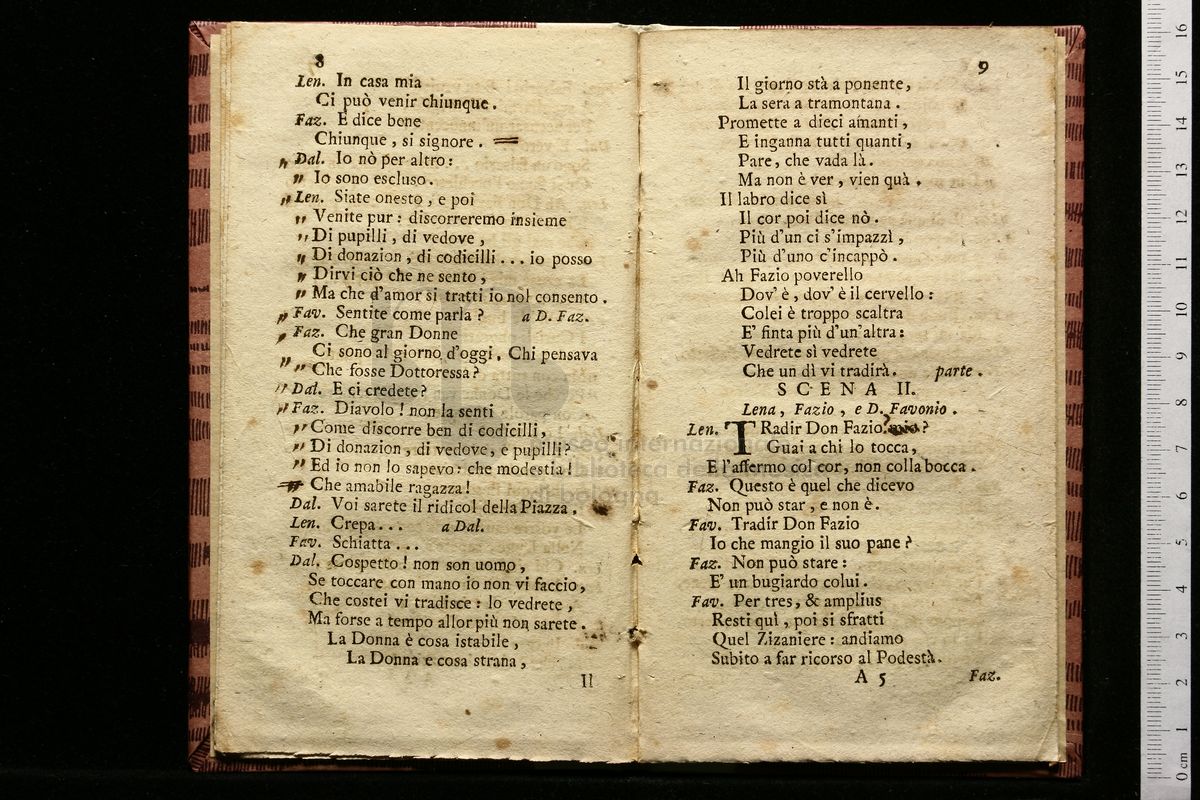 8
Len. In casa mia
Ci può venir chiunque.
Faz. E dice bene
Chiunque, si signore.
„ Dal. Io nò per altro:
„ Io sono escluso.
„ Len. Siate onesto, e poi
„ Venite pur: discorreremo insieme
„ Di pupilli, di vedove,
„ Di donazion, di codicilli... io posso
„ Dirvi ciò che ne sento,
„ Ma che d'amor si tratti io nol consento.
„ Fav. Sentite come parla? a D. Faz.
„ Faz. Che gran Donne
„ Ci sono al giorno d'oggi. Chi pensava
„ Che fosse Dottoressa?
„ Dal. E ci credete?
„ Faz. Diavolo! non la senti
„ Come discorre ben di codicilli,
„ Di donazion, di vedove, e pupilli?
„ Ed io non lo sapevo: che modestia!
Che amabile ragazza!
Dal. Voi sarete il ridicol della Piazza.
Len. Crepa... a Dal.
Fav. Schiatta...
Dal. Cospetto! non son uomo,
Se toccare con mano io non vi faccio,
Che costei vi tradisce: lo vedrete,
Ma forse a tempo allor più non sarete.
La Donna è cosa istabile,
La Donna e cosa strana,
Il
9
Il giorno stà a ponente,
La sera a tramontana.
Promette a dieci amanti,
E inganna tutti quanti,
Pare, che vada là.
Ma non è ver, vien quà.
Il labro dice sì
Il cor poi dice nò.
Più d'un ci s'impazzì,
Più d'uno c'incappò.
Ah Fazio poverello
Dov'è, dov'è il cervello:
Colei è troppo scaltra
E' finta più d'un'altra:
Vedrete sì vedrete
Che un dì vi tradirà. parte.
SCENA II.
Lena, Fazio, e D. Favonio.
Len. TRadir Don Fazio? mio?
Guai a chi lo tocca,
E l'affermo col cor, non colla bocca.
Faz. Questo è quel che dicevo
Non può star, e non è.
Fav. Tradir Don Fazio
Io che mangio il suo pane?
Faz. Non può stare:
E' un bugiardo colui.
Fav. Per tres, & amplius
Resti quì, poi si sfratti
Quel Zizaniere: andiamo
Subito a far ricorso al Podestà.
A 5 Faz.
museo internazionale
biblioteca della musica
di bologna
0 cm 1 2 3 4 5 6 7 8 9 10 11 12 13 14 15 16